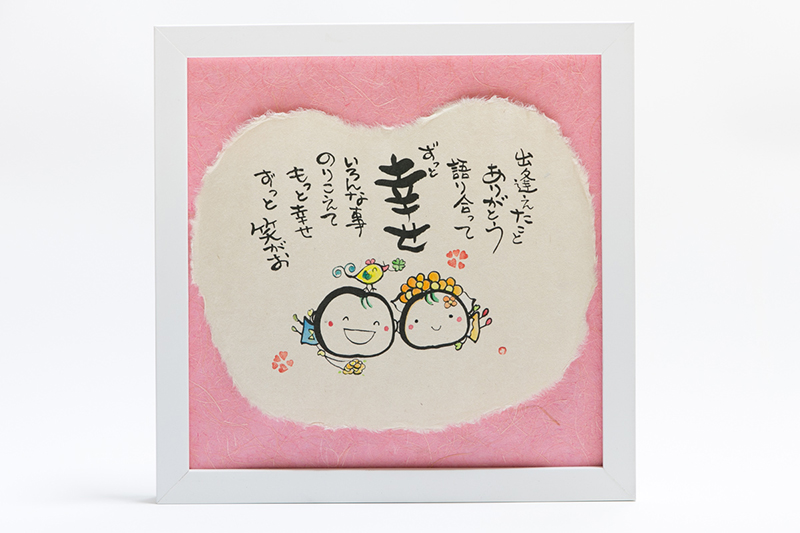 出逢えたこと
ありがとう
語り合って
ずっと
幸せ
いろんな事
のりこえて
もっと幸せ
ずっと笑がお